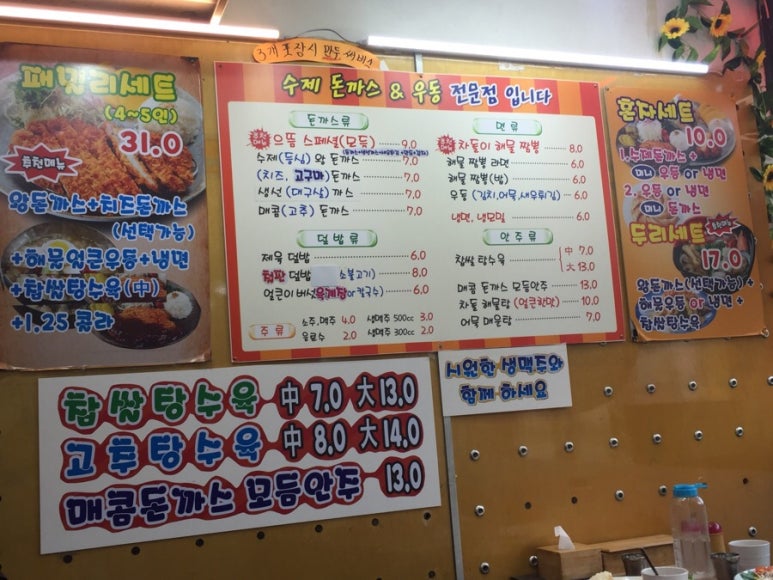 3개 포장시 만두 써비스
패밀리세트
(4~5인)
31.0
추천메뉴
왕돈까스+치즈돈까스
(선택가능)
+해물얼큰우동+냉면
+찹쌀탕수육(中)
+1.25 콜라
수제 돈까스 & 우동 전문점 입니다
돈까스류
으뜸 스페셜(모듬) 9.0
수제(등심) 왕 돈까스 7.0
(치즈, 고구마)돈까스 7.0
생선 (대구살) 까스 7.0
매콤(고추) 돈까스 7.0
덮밥류
제육 덮밥 6.0
철판 덮밥 소불고기) 8.0
얼큰이 버섯육개장or칼국수) 6.0
주류
소주,맥주 4.0 생맥주 500cc 3.0
음료수 2.0 생맥주 300cc 2.0
면류
차돌이 해물 짬뽕 8.0
해물 짬뽕 라면 6.0
해물 짬뽕(밥) 6.0
우동 (김치,어묵,새우튀김) 6.0
냉면, 냉모밀 6.0
안주류
찹쌀 탕수육 中 7.0
大 13.0
매콤 돈까스 모듬안주 13.0
차돌 해물탕 (얼큰한맛) 10.0
어묵 매운탕 7.0
혼자세트
10.0
1.수제돈까스+
미니 우동 or 냉면
2. 우동 or 냉면
미니 돈까스
두리세트
17.0
왕돈까스(선택가능)+
해물우동 or 냉면+
찹쌀탕수육
찹쌀탕수육 中 7.0 大 13.0
고추탕수육 中 8.0 大 14.0
매콤돈까스 모듬안주 13.0
시원한 생맥주와
함께 하세요